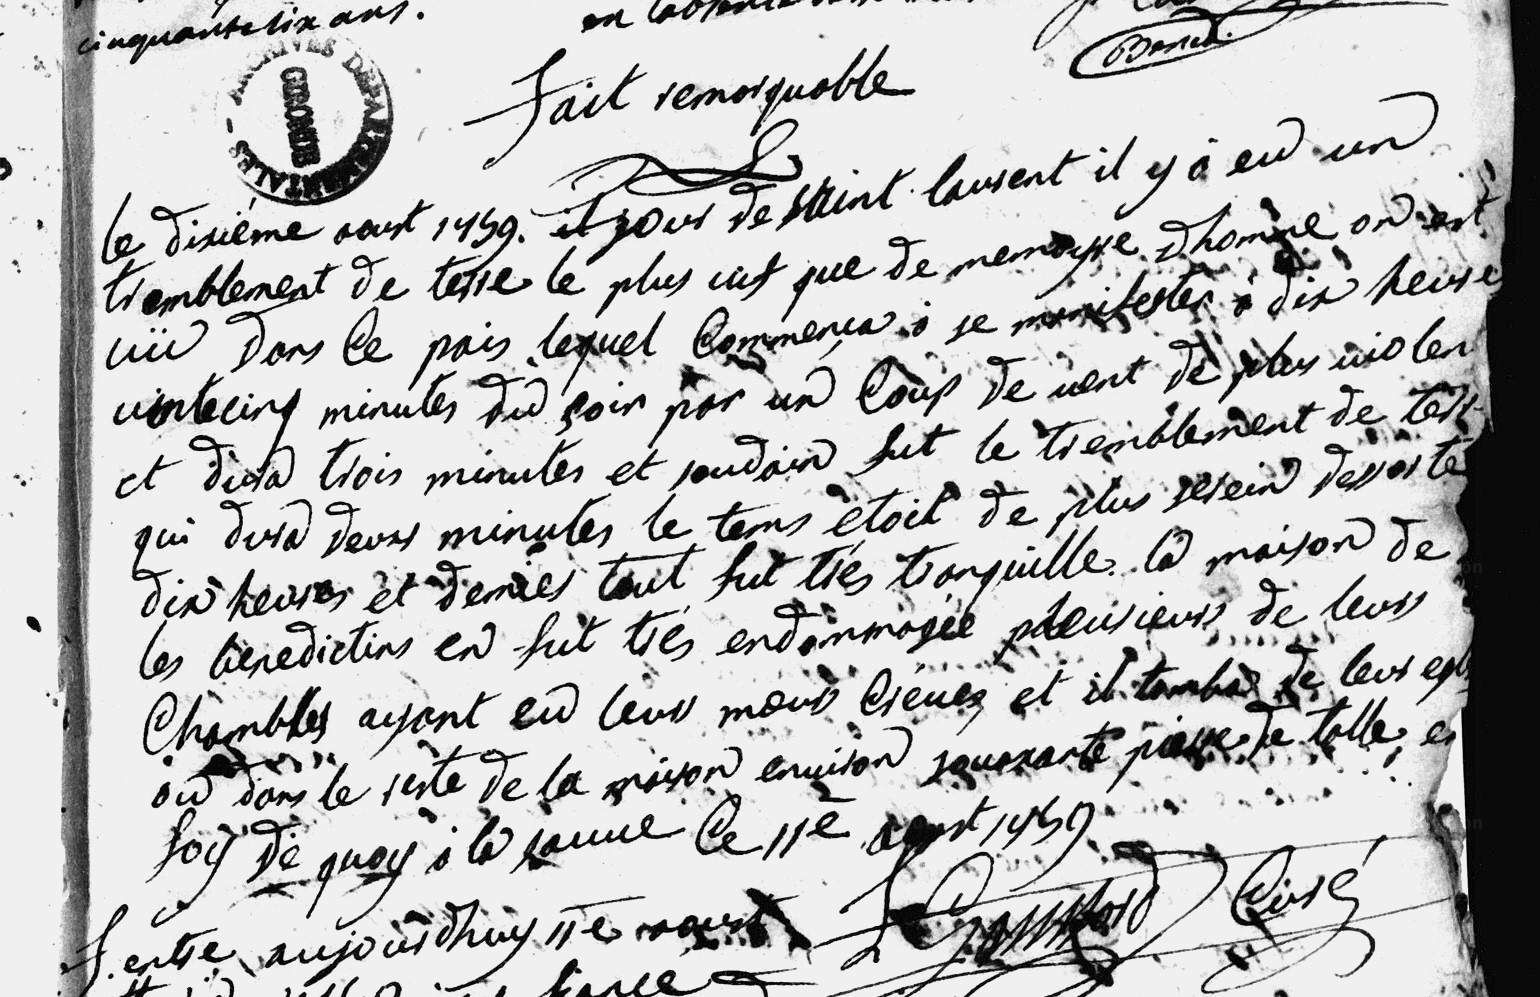 cinquante six ans.
en
Bonca.
ARCHIVES DEPARTEMENTALES
GIRONDE
fait remarquable
le dixiéme aoust 1759. il jour de saint laurent il y à eu un
tremblement de terre le plus vif que de memoyre dhomme on est
viü dans Ce païs lequel Commença à se manifester à dix heure
vintecinq minutes du soir par un Coup de vent de plus violen
et dura trois minutes et soudain fut le tremblement de terr
qui dura deux minutes le tems étoit de plus serein dessorte
dix heures et demies tout fut trés tranquille. la maison de
les benedictins en fut trés endommagée pleusieurs de leurs
Chambles ayant eu leurs meurs Crévés et il tomba de leur egli
ou dans le reste de la maison environ souxante piesse de talle. en
foy de quoy à la sauve Ce 11e aoust 1759
Curé
entre aujourdhuy 11e aoust